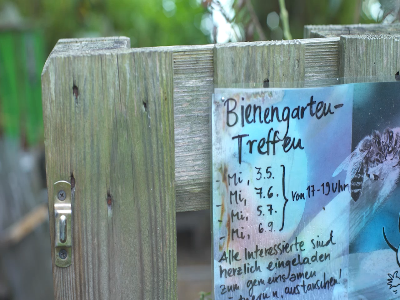 Bienengarten-
Treffen
- Mi, 3.5.
- Mi, 7.6.
- Mi, 5.7.
- Mi, 6.9.
von 17-19 Uhr
Alle Interessierte sind
herzlich eingeladen
zum gemeinsamen
austauschen!